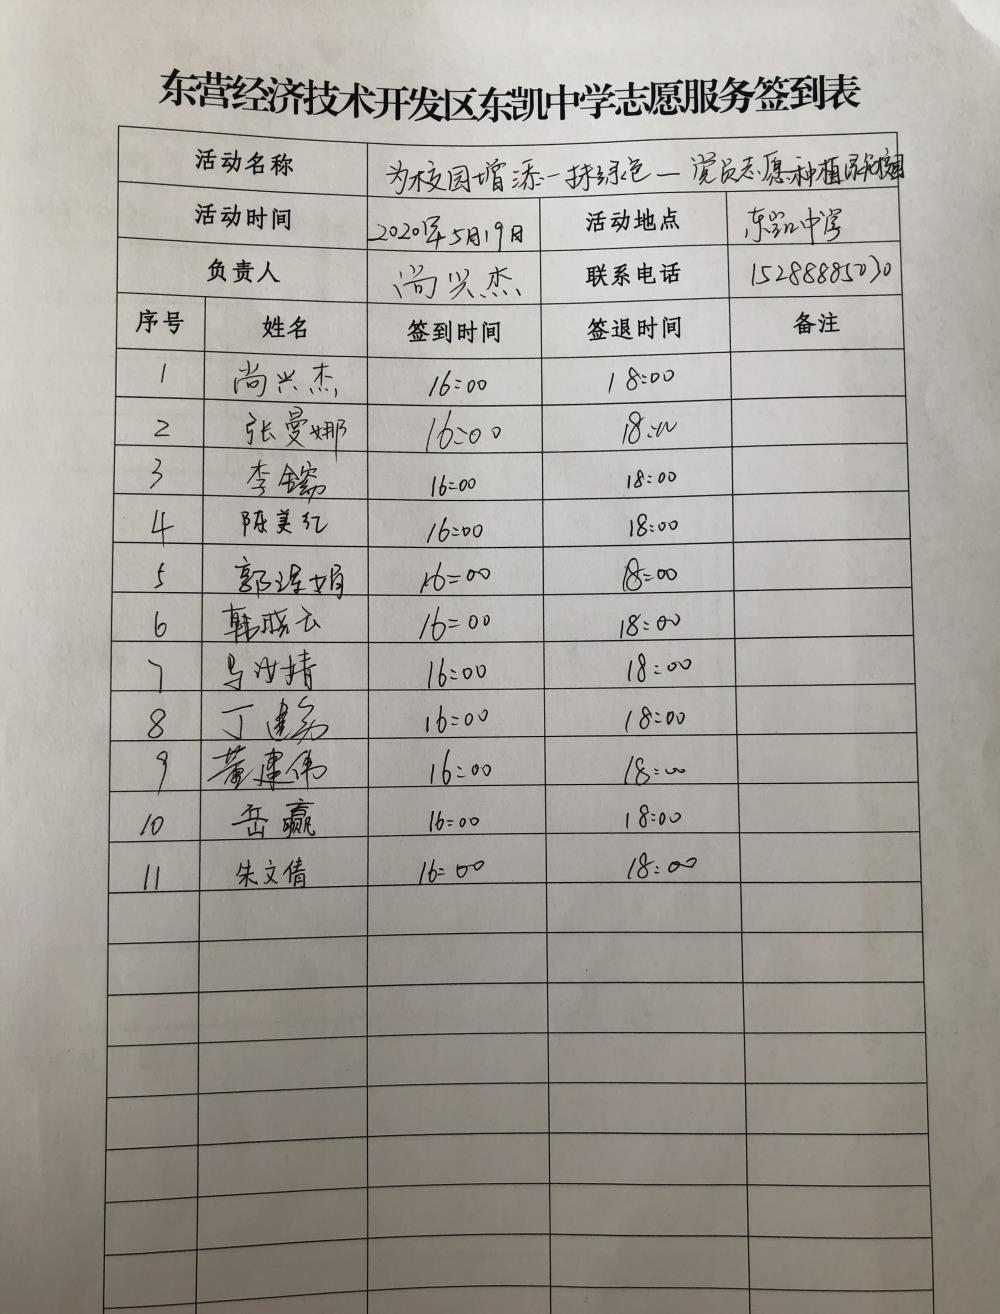 东营经济技术开发区东凯中学志愿服务签到表
活动名称 为校园增添一抹绿色—党员志愿种植
活动时间 2020年5月19日 活动地点 东凯中学
负责人 尚兴杰 联系电话 15288885030
序号 姓名 签到时间 签退时间 备注
1 尚兴杰 16:00 18:00
2 张曼娜 16:00 18:00
3 李 16:00 18:00
4 陈美红 16:00 18:00
5 郭 娟 16:00 18:00
6 韩晓云 16:00 18:00
7 马 婧 16:00 18:00
8 丁建 16:00 18:00
9 董建伟 16:00 18:00
10 岳赢 16:00 18:00
11 朱文倩 16:00 18:00